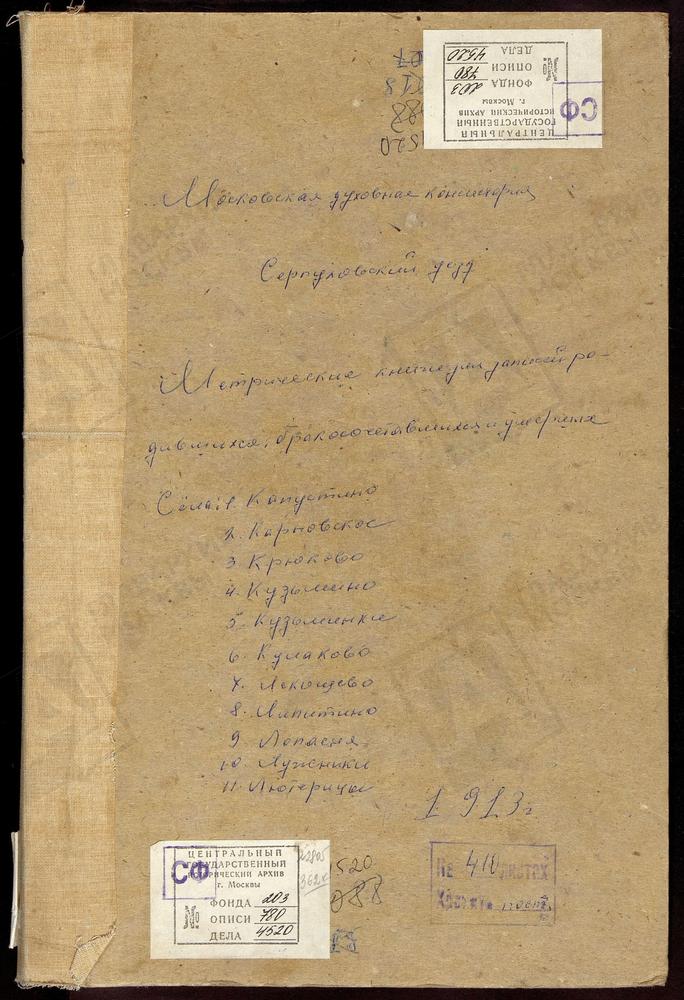 ЦЕНТРАЛЬНЫЙ
ГОСУДАРСТВЕННЫЙ
ИСТОРИЧЕСКИЙ АРХИВ
г. Москвы
№ ФОНДА 203
ОПИСИ 780
ДЕЛА 4520
СФ
Московская духовная консистория
Серпуховский уезд
Метрические книги для записей ро-
дившихся, бракосочетавшихся и умерших
Сёла: 1. Капустино
2. Карповское
3 Крюково
4. Кузьмино
5. Кузьминки
6. Кулаково
7. Лекощево
8. Липитино
9 Лопасня
10 Лужники
11. Лютерицы
1913 г
СФ
ЦЕНТРАЛЬНЫЙ
ГОСУДАРСТВЕННЫЙ
ИСТОРИЧЕСКИЙ АРХИВ
г. Москвы
№ ФОНДА 203
ОПИСИ 780
ДЕЛА 4520
520
088
На 410 листах